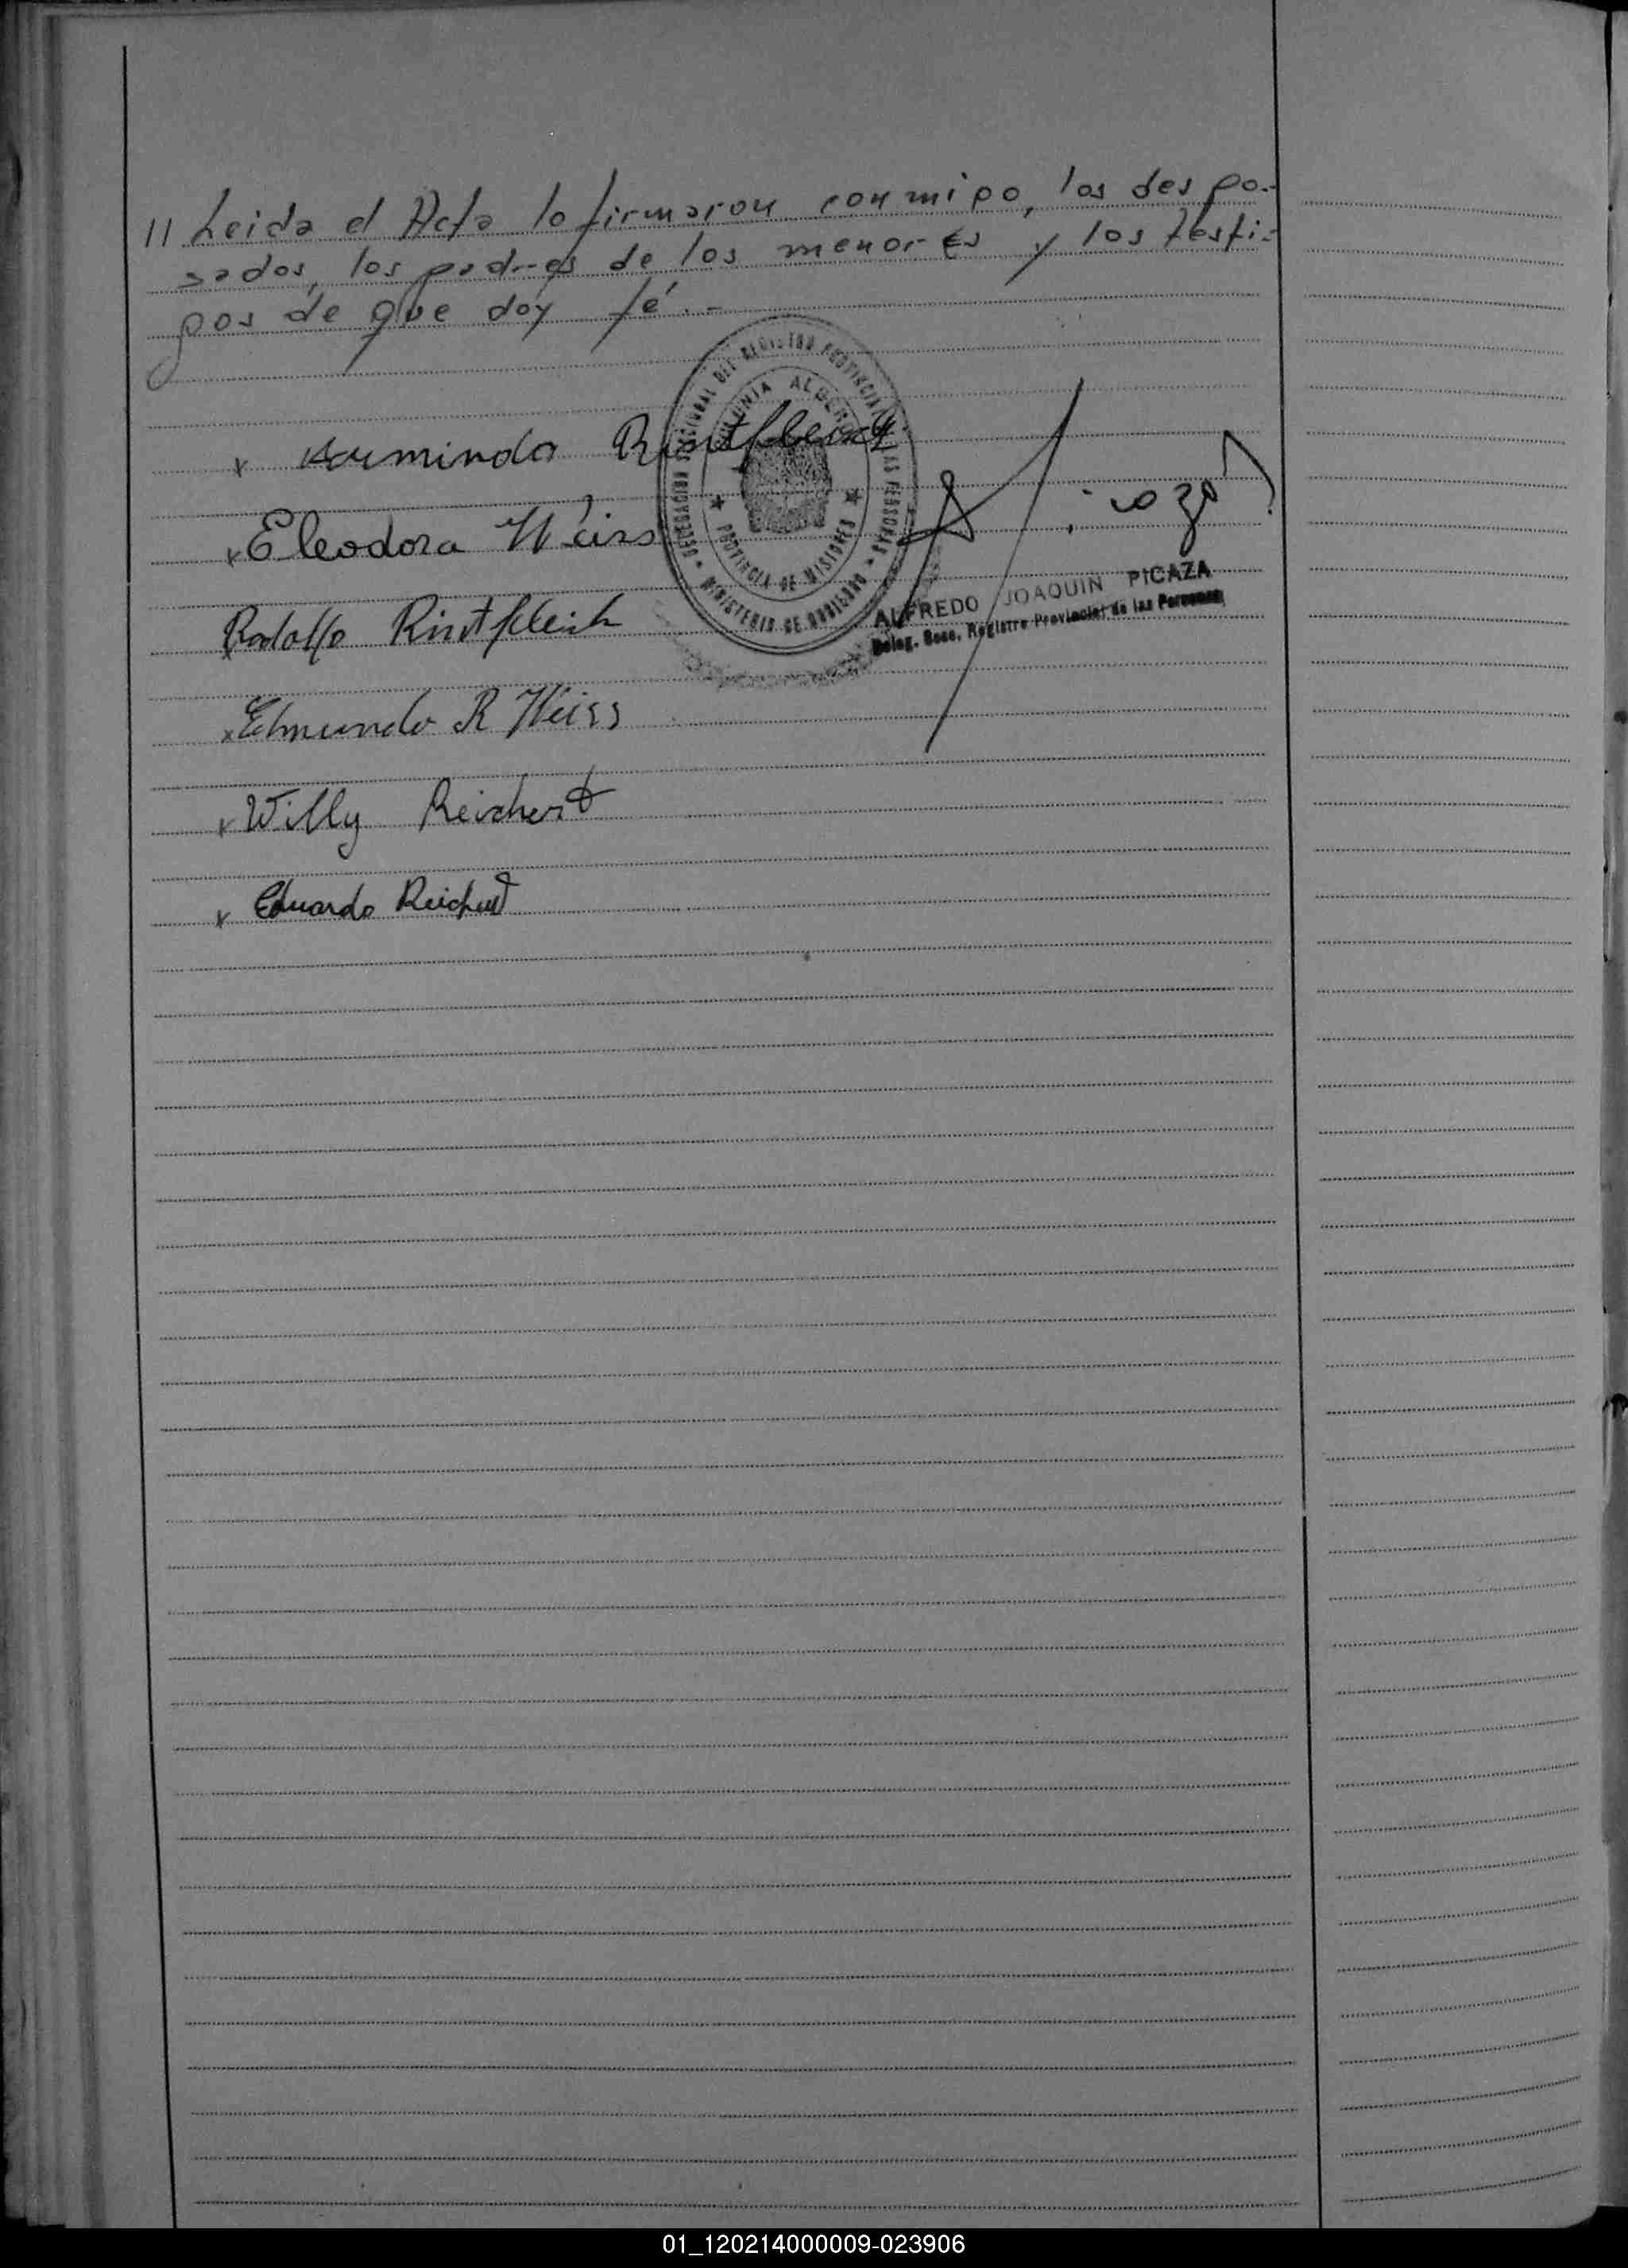 // Leida el Acta lo firmaron conmigo, los despo-
sados, los padres de los menores y los testi-
gos de que doy fé.-
x Armindo Rintfleisch
x Eleodora Weiss
Rodolfo Rintfleich
x Edmundo R Weiss
x Willy Reichert
x Eduardo Reichert
DELEGACION SECCIONAL DEL REGISTRO PROVINCIAL DE LAS PERSONAS
MINISTERIO DE GOBIERNO
COLONIA ALBERDI
PROVINCIA DE MISIONES
ALFREDO JOAQUIN PICAZA
Deleg. Secc. Registro Provincial de las Personas
01_120214000009-023906